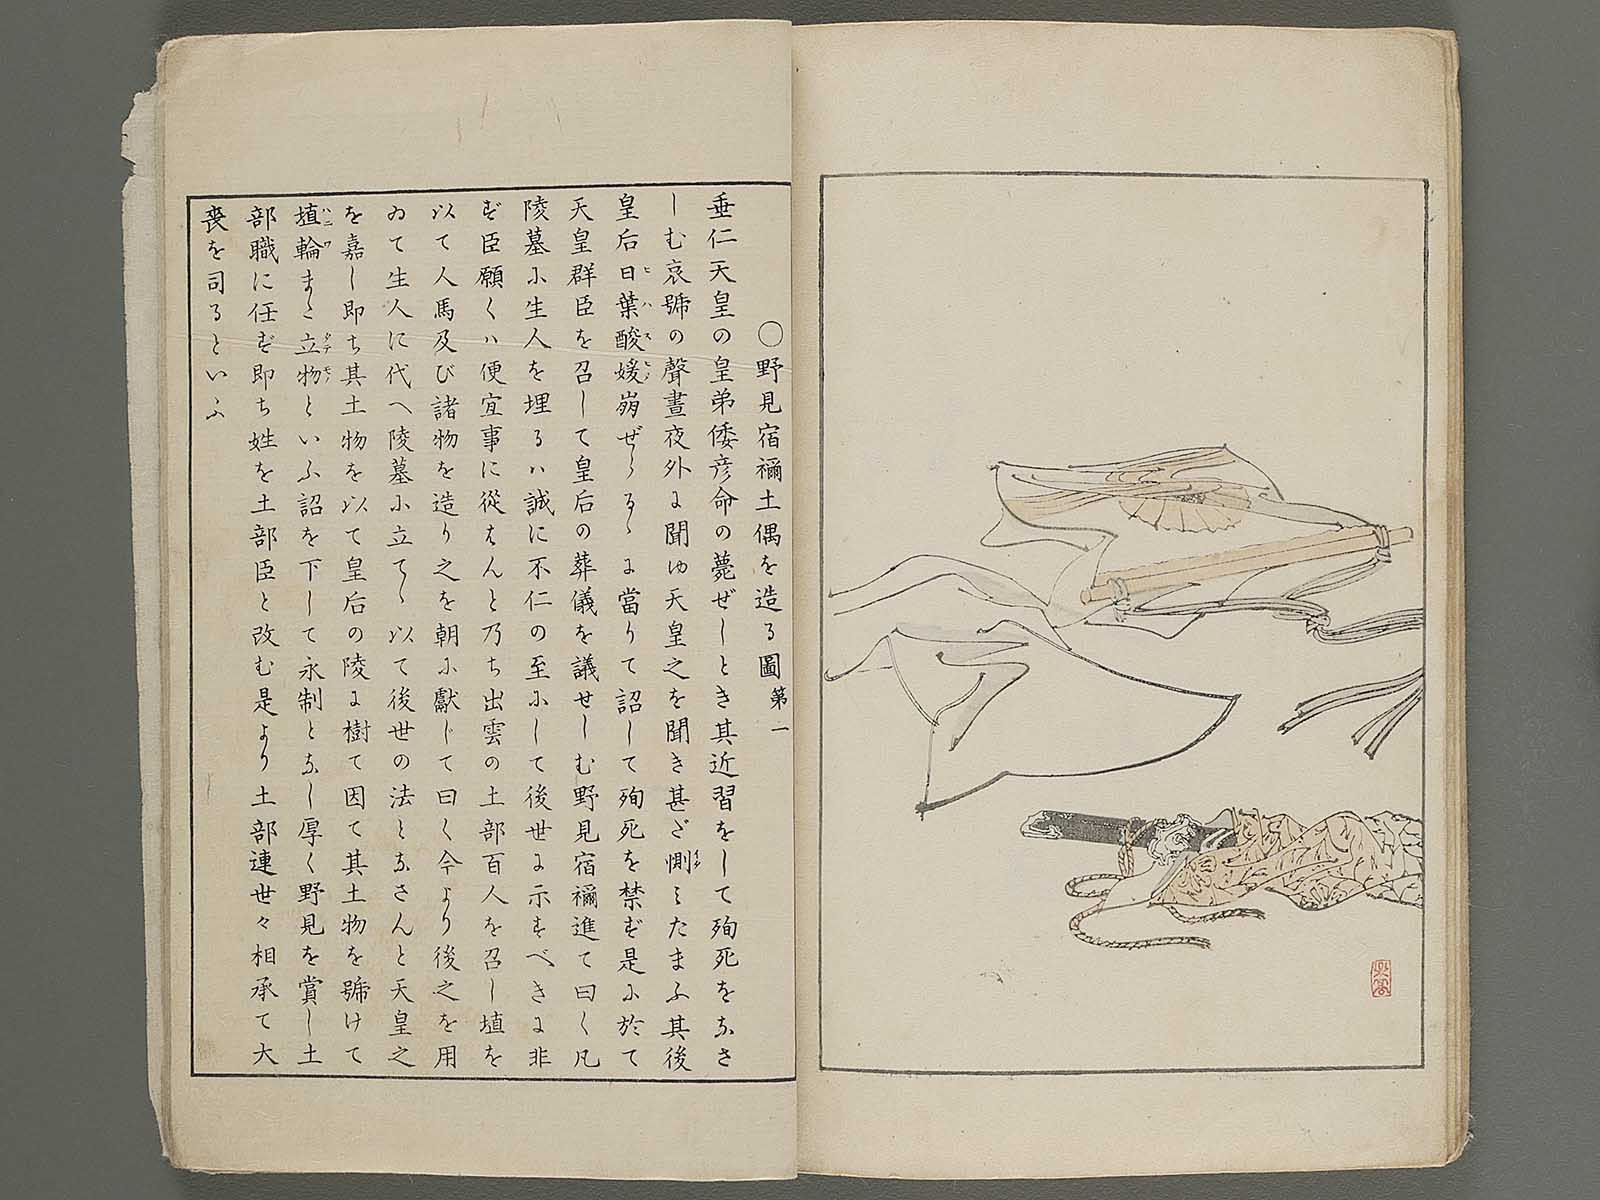 〇野見宿禰土偶を造る圖 第一
垂仁天皇の皇弟倭彦命の薨ぜしとき其近習をして殉死をなさ
しむ哀號の聲晝夜外に聞ゆ天皇之を聞き甚ざ惻みたまふ其後
皇后日葉酸媛崩ぜらるゝに當りて詔して殉死を禁ず是に於て
天皇群臣を召して皇后の葬儀を議せしむ野見宿禰進て曰く凡
陵墓に生人を埋るハ誠に不仁の至にして後世に示すべきに非
ず臣願くハ便宜事に從はんと乃ち出雲の土部百人を召し埴を
以て人馬及び諸物を造り之を朝に獻じて曰く今より後之を用
ゐて生人に代へ陵墓に立てゝ以て後世の法となさんと天皇之
を嘉し即ち其土物を以て皇后の陵に樹て因て其土物を號けて
埴輪また立物といふ詔を下して永制となし厚く野見を賞し土
部職に任ず即ち姓を土部臣と改む是より土部連世々相承て大
喪を司るといふ